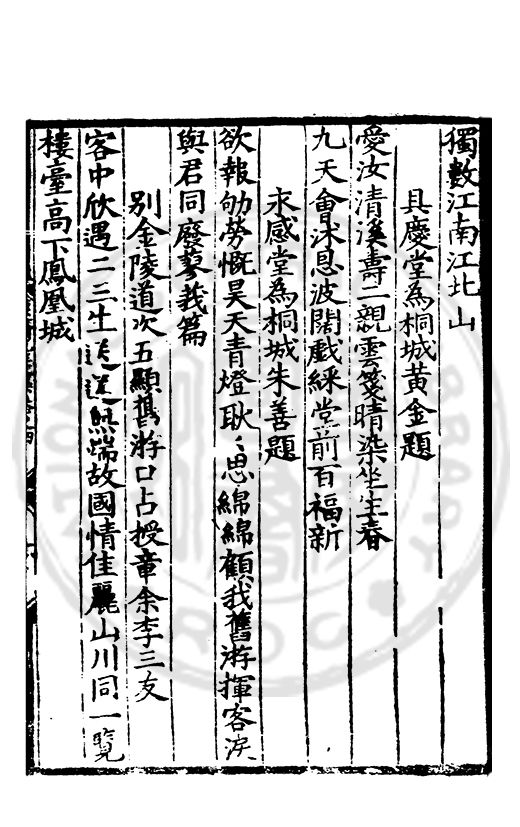 獨數江南江北山
具慶堂為桐城黃金題
愛汝清溪壽二親雲箋晴染坐生春
九天會沐恩波闊戲綵堂前百福新
永感堂為桐城朱善題
欲報劬勞慨昊天青燈耿〻思綿綿顧我舊游揮客淚
與君同廢蓼莪篇
別金陵道次五顯舊游口占授章余李三友
客中欣遇二三生送送無端故國情佳麗山川同一覽
樓臺高下鳳凰城